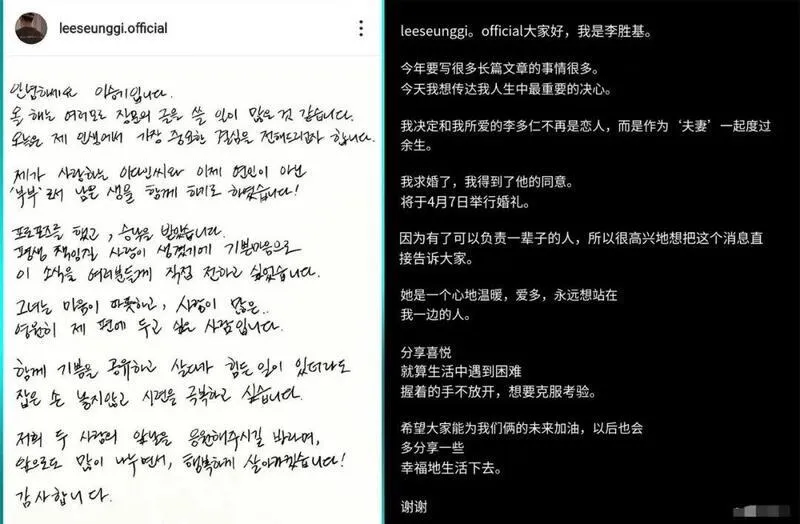 leeseunggi.official
안녕하세요 이승기입니다.
올 해는 여러모로 장문의 글을 쓸 일이 많은 것 같습니다.
오늘은 제 인생에서 가장 중요한 결심을 전해드리고자 합니다.
제가 사랑하는 이다인씨와 이제 연인이 아닌
'부부'로서 남은 생을 함께 하기로 하였습니다!
프로포즈를 했고, 승낙을 받았습니다.
평생 책임질 사람이 생겼기에 기쁜마음으로
이 소식을 여러분들께 직접 전하고 싶었습니다.
그녀는 마음이 따뜻하고, 사랑이 많은..
영원히 제 편에 두고 싶은 사람입니다.
함께 기쁨을 공유하고 살다가 힘든일이 있더라도
잡은 손 놓지않고 시련을 극복하고 싶습니다.
저희 두 사람의 앞날을 응원해주시길 바라며,
앞으로도 많이 나누면서, 행복하게 살아가겠습니다!
감사합니다.
leeseunggi。official大家好，我是李胜基。
今年要写很多长篇文章的事情很多。
今天我想传达我人生中最重要的决心。
我决定和我所爱的李多仁不再是恋人，而是作为‘夫妻’一起度过
余生。
我求婚了，我得到了他的同意。
将于4月7日举行婚礼。
因为有了可以负责一辈子的人，所以很高兴地想把这个消息直
接告诉大家。
她是一个心地温暖，爱多，永远想站在
我一边的人。
分享喜悦
就算生活中遇到困难
握着的手不放开，想要克服考验。
希望大家能为我们俩的未来加油，以后也会
多分享一些
幸福地生活下去。
谢谢